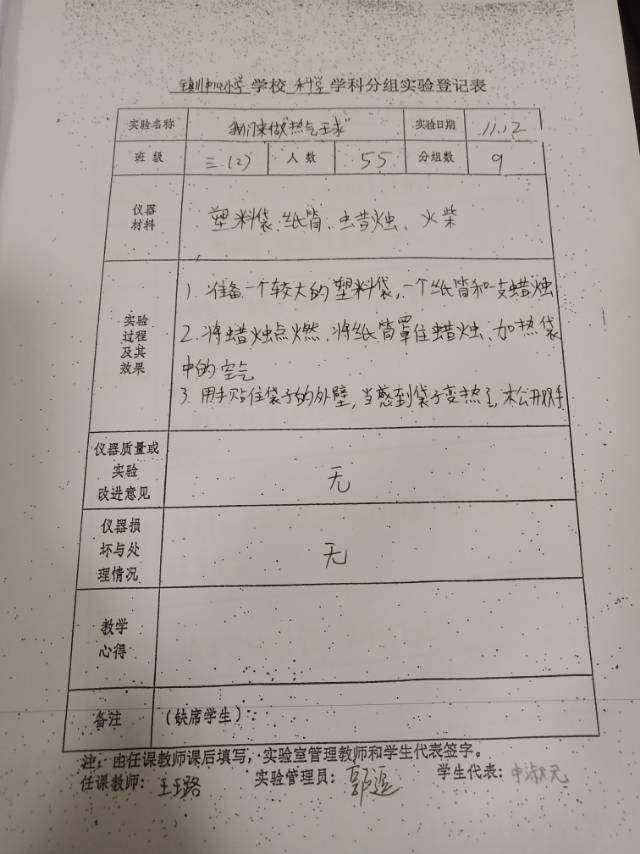 镇川中心小学 学校 科学 学科分组实验登记表
实验名称 我们来做"热气球" 实验日期 11.12
班 级 三(2) 人 数 55 分组数 9
仪器
材料
塑料袋、纸筒、虫昔烛、火柴
实验
过程
及其
效果
1. 准备一个较大的塑料袋,一个纸筒和一支蜡烛
2. 将蜡烛点燃,将纸筒罩住蜡烛、加热袋
中的空气
3. 用手贴住袋子的外壁,当感到袋子变热了,松开双手
仪器质量或
实验
改进意见
无
仪器损
坏与处
理情况
无
教学
心得
备注 (缺席学生):
注:由任课教师课后填写,实验室管理教师和学生代表签字。
任课教师: 实验管理员: 学生代表: